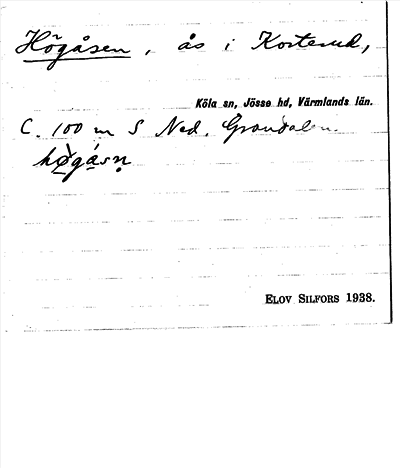 Högåsen, ås i Korterud,
Köla sn, Jösse hd, Värmlands län.
C. 100 m S Ned. Grandalen.
høgåsn̥
ELOV SILFORS 1938.